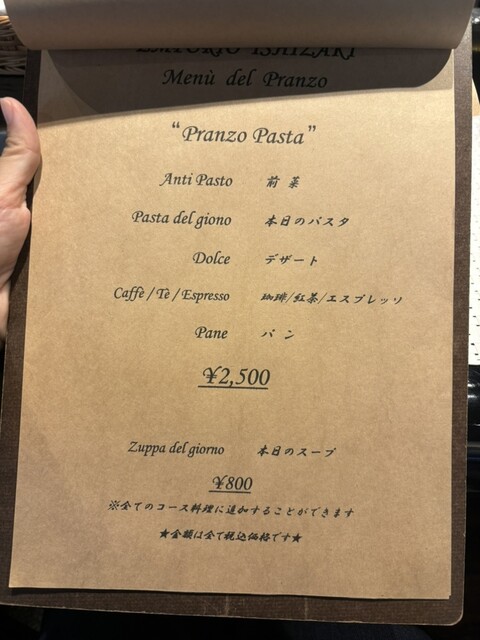 EMPORIO ISHIZAKI
Menù del Pranzo
“Pranzo Pasta”
Anti Pasto 前菜
Pasta del giono 本日のパスタ
Dolce デザート
Caffè / Tè / Espresso 珈琲/紅茶/エスプレッソ
Pane パン
¥2,500
Zuppa del giorno 本日のスープ
¥800
※全てのコース料理に追加することができます
★金額は全て税込価格です★